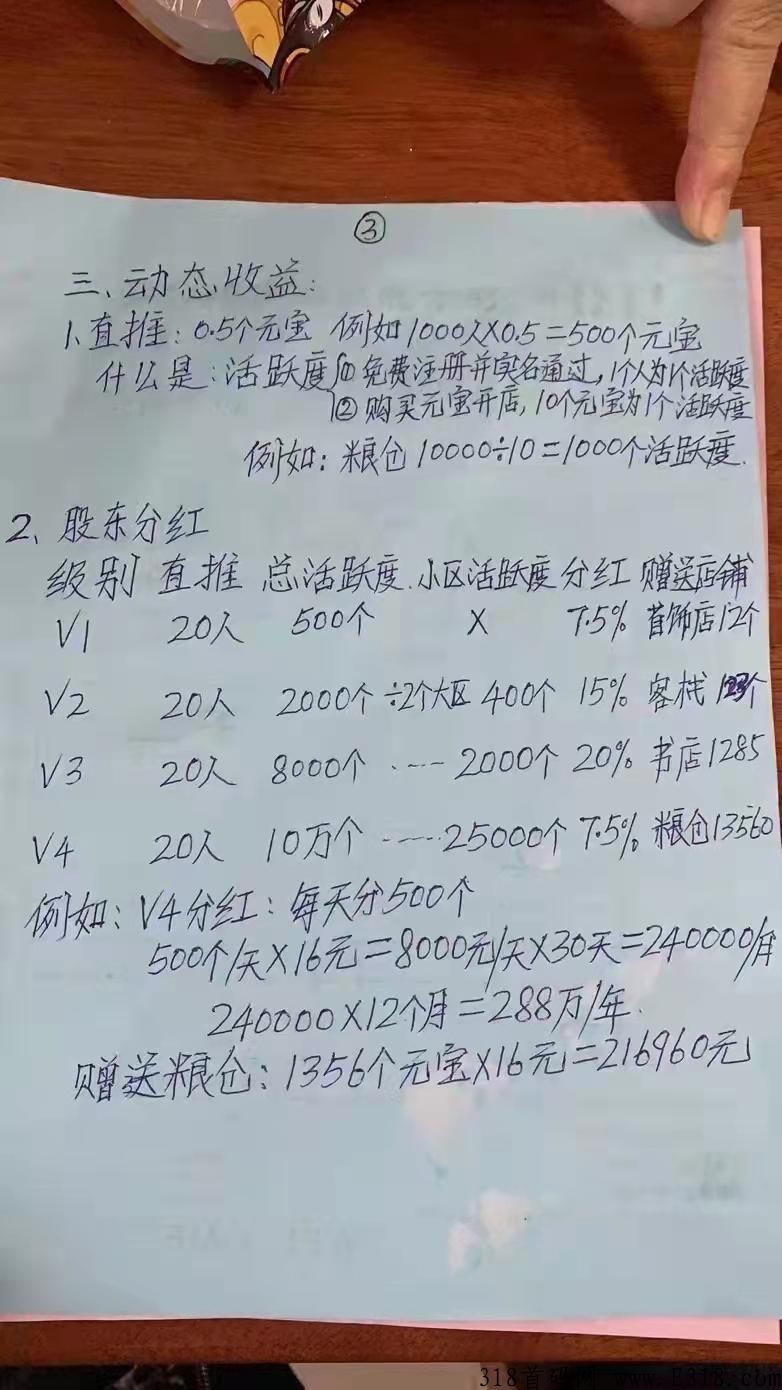 ③
三、动态收益:
1、直推: 0.5个元宝 例如1000人X0.5=500个元宝
什么是:活跃度 ① 免费注册并实名通过,1个人为1个活跃度
② 购买元宝开店,10个元宝为1个活跃度
例如: 粮仓 10000÷10=1000个活跃度.
2、股东分红
级别 直推 总活跃度. 小区活跃度 分红 赠送店铺
V1 20人 500个 X 7.5% 首饰店12个
V2 20人 2000个 ÷2个大区 400个 15% 客栈 个
V3 20人 8000个 ---- 2000个 20% 书店1285
V4 20人 10万个 ----- 25000个 7.5% 粮仓13560
例如: V4分红: 每天分500个
500个/天X16元=8000元/天X30天=240000/月
240000X12个月=288万/年.
赠送粮仓: 1356个元宝X16元=216960元
318首码网 www.E318.com